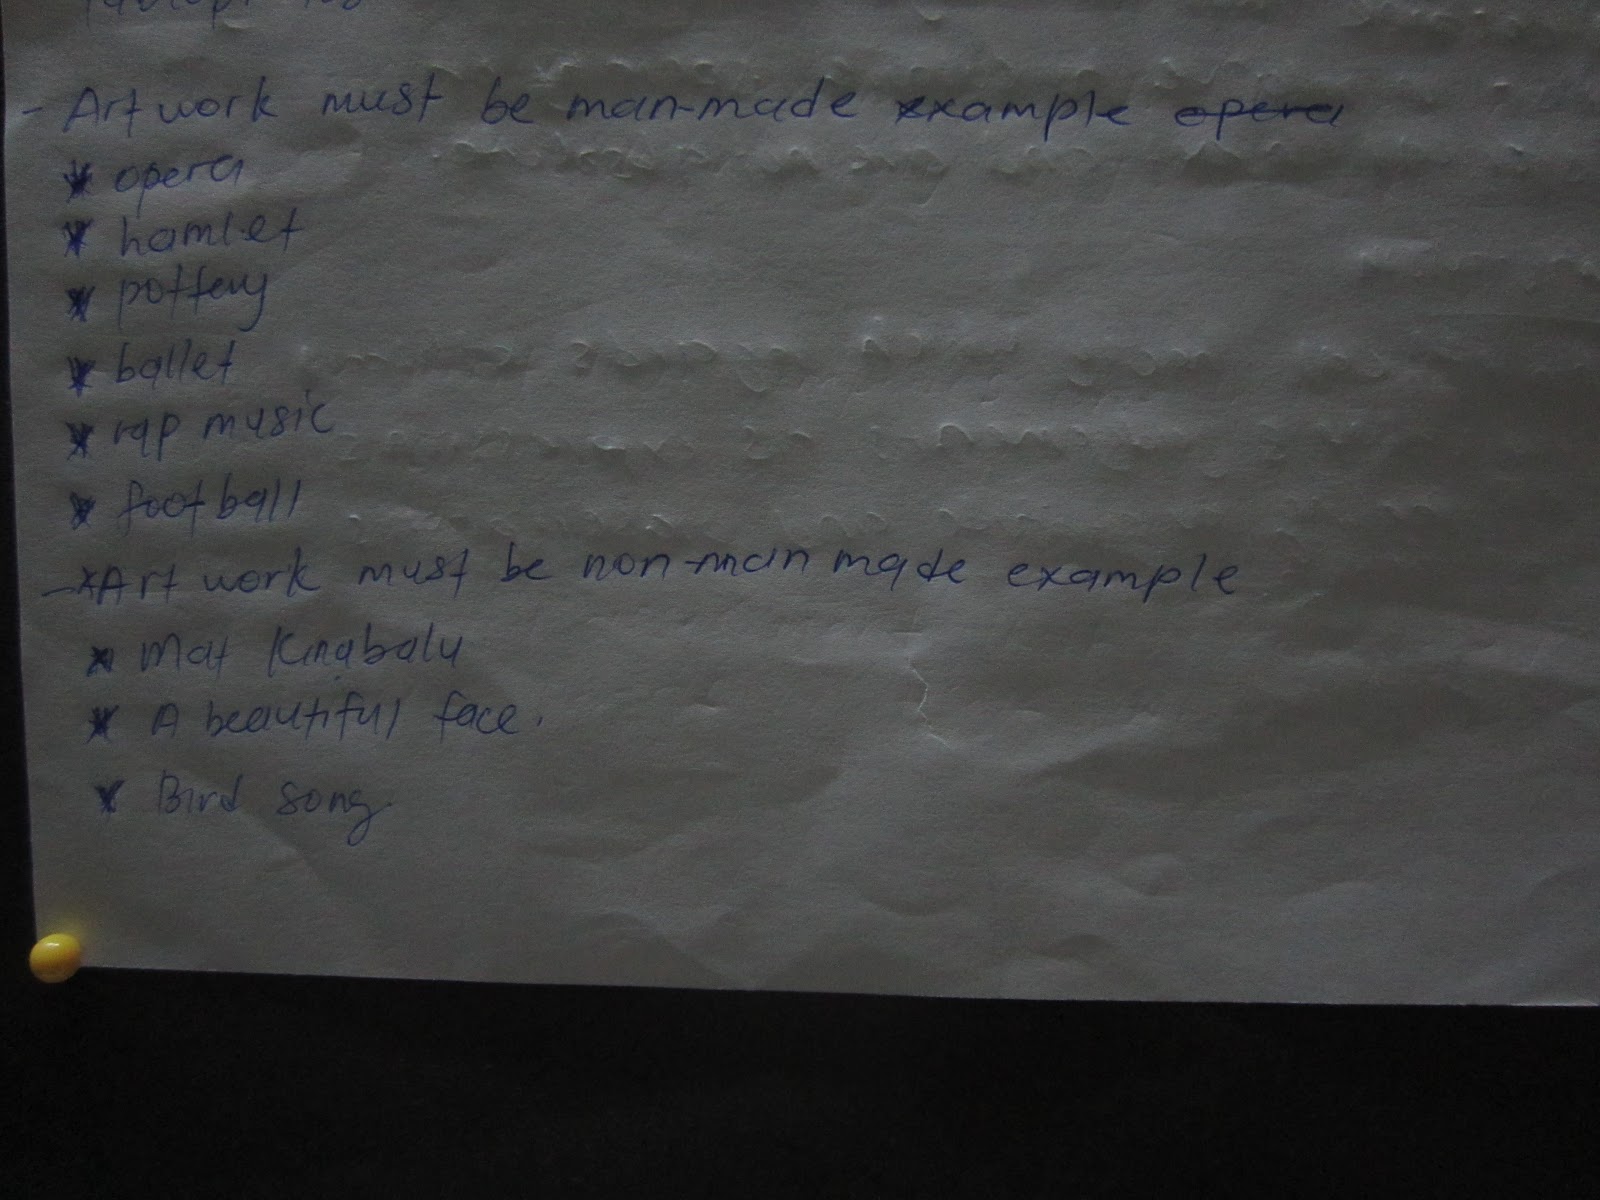 - Art work must be man-made example opera
* opera
* hamlet
* pottery
* ballet
* rap music
* football
- *Art work must be non-man made example
* Mat Kinabalu
* A beautiful face.
* Bird song.